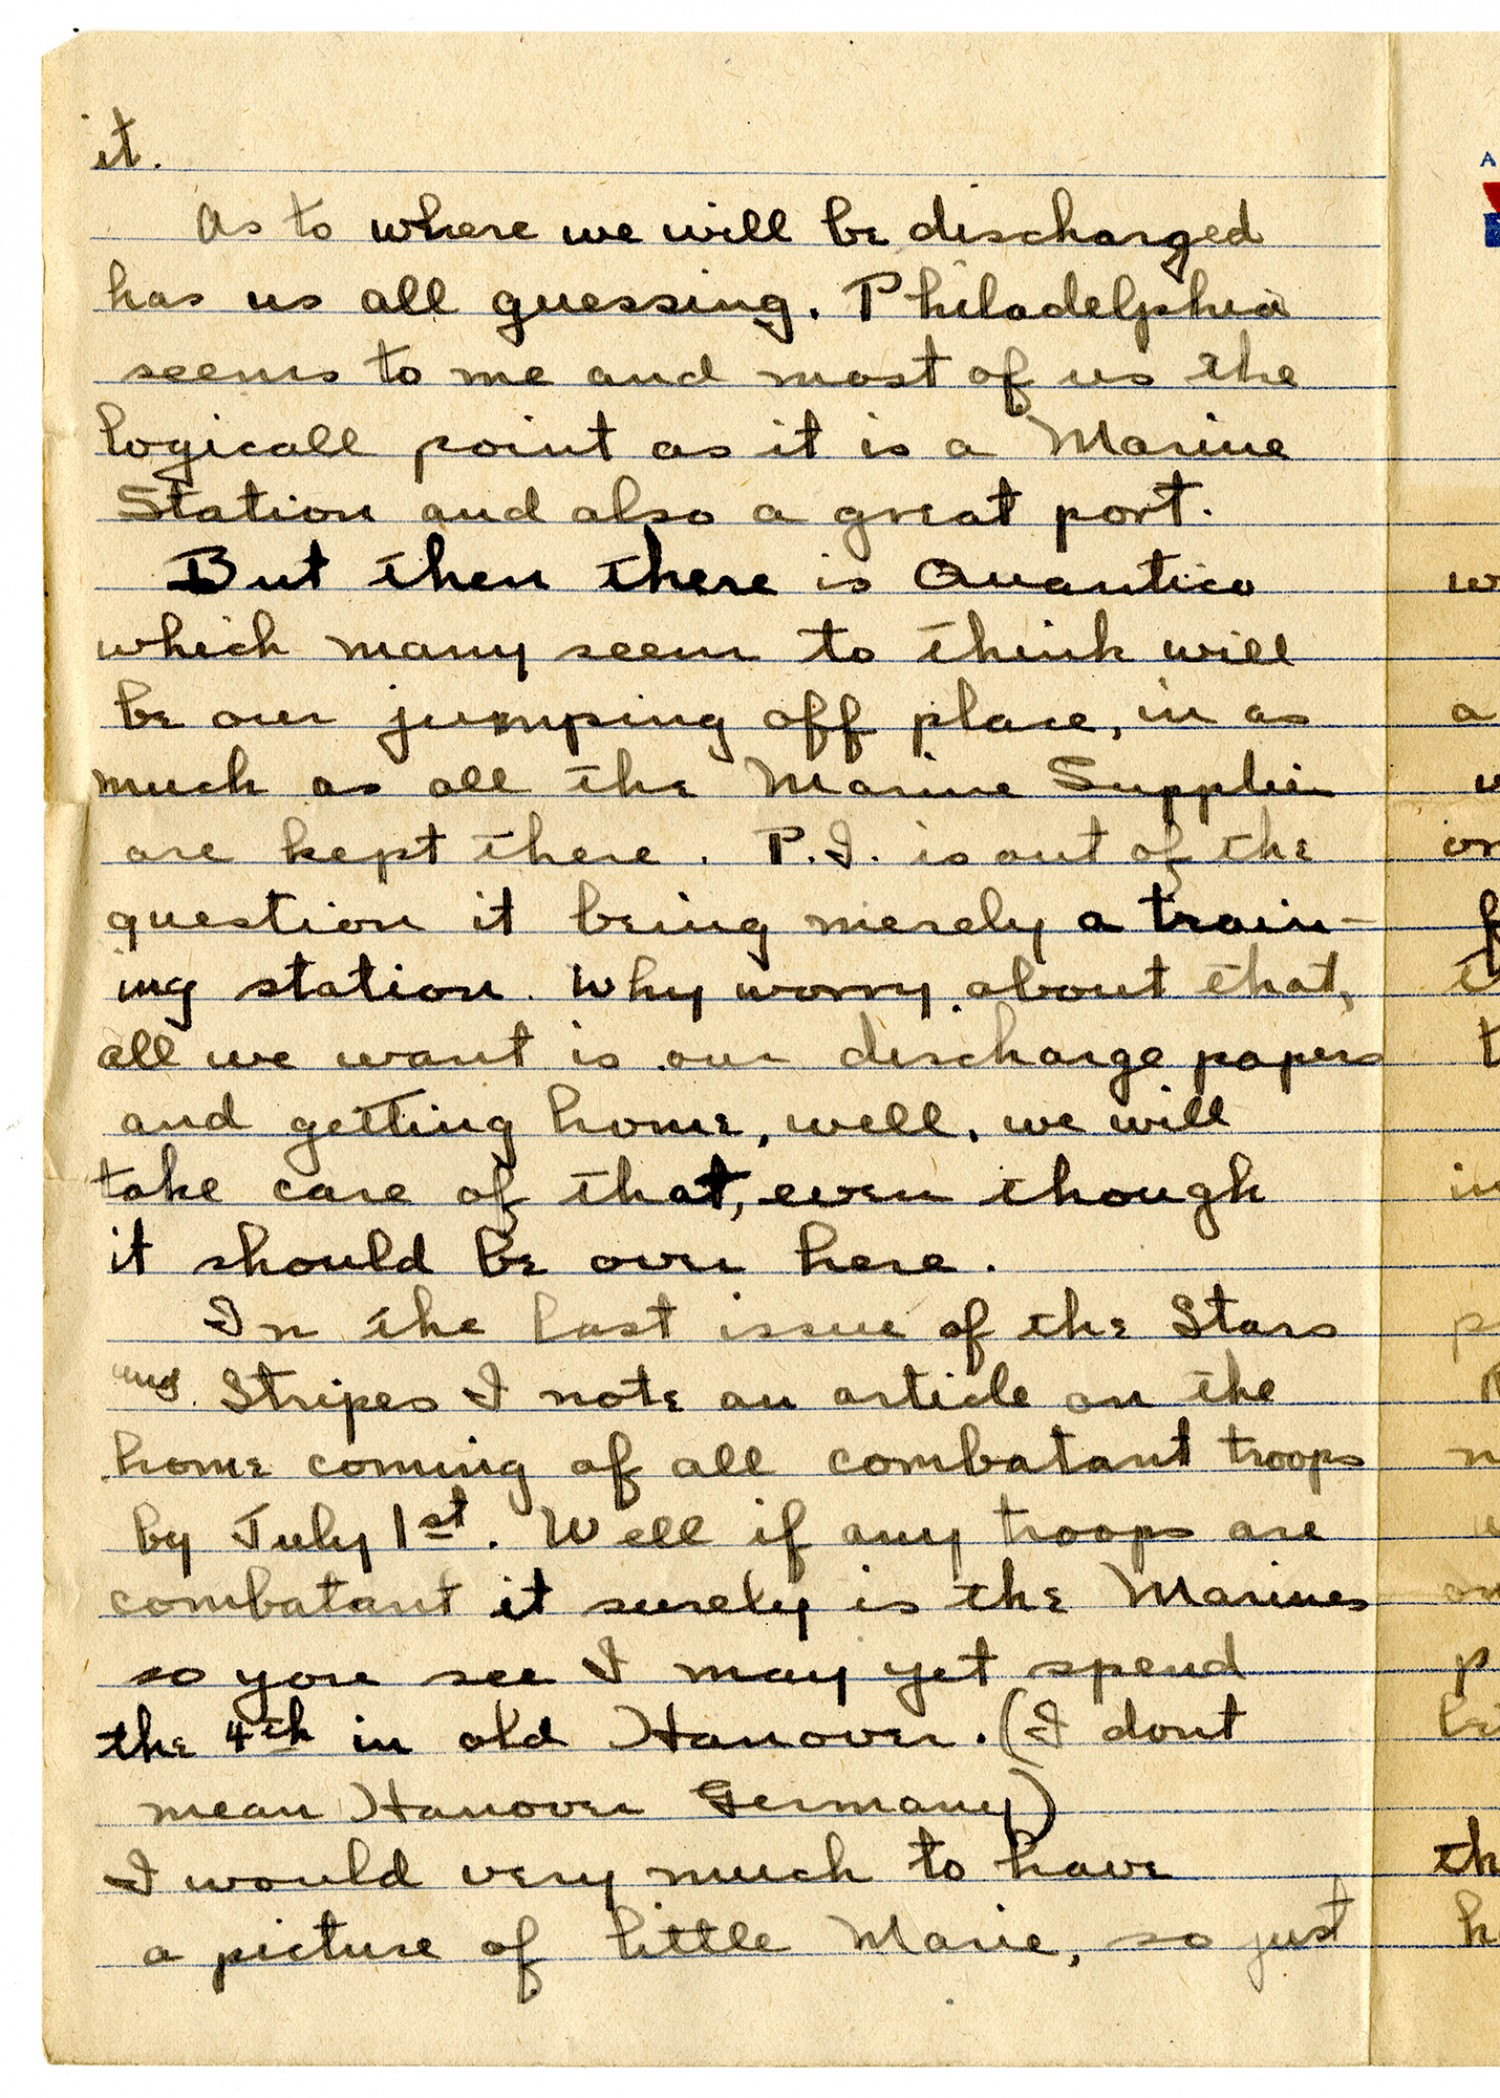 it.
As to where we will be discharged
has us all guessing. Philadelphia
seems to me and most of us the
logicall point as it is a Marine
Station and also a great port.
But then there is Quantico
which many seem to think will
be our jumping off place, in as
much as all the Marine Supplies
are kept there. P.I. is out of the
question it being merely a train-
ing station. Why worry about that,
all we want is our discharge papers
and getting home, well, we will
take care of that, even though
it should be over here.
In the last issue of the Stars
and Stripes I note an article on the
home coming of all combatant troops
by July 1st. Well if any troops are
combatant it surely is the Marines
so you see I may yet spend
the 4th in old Hanover. (I dont
mean Hanover Germany)
I would very much to have
a picture of little Marie, so just